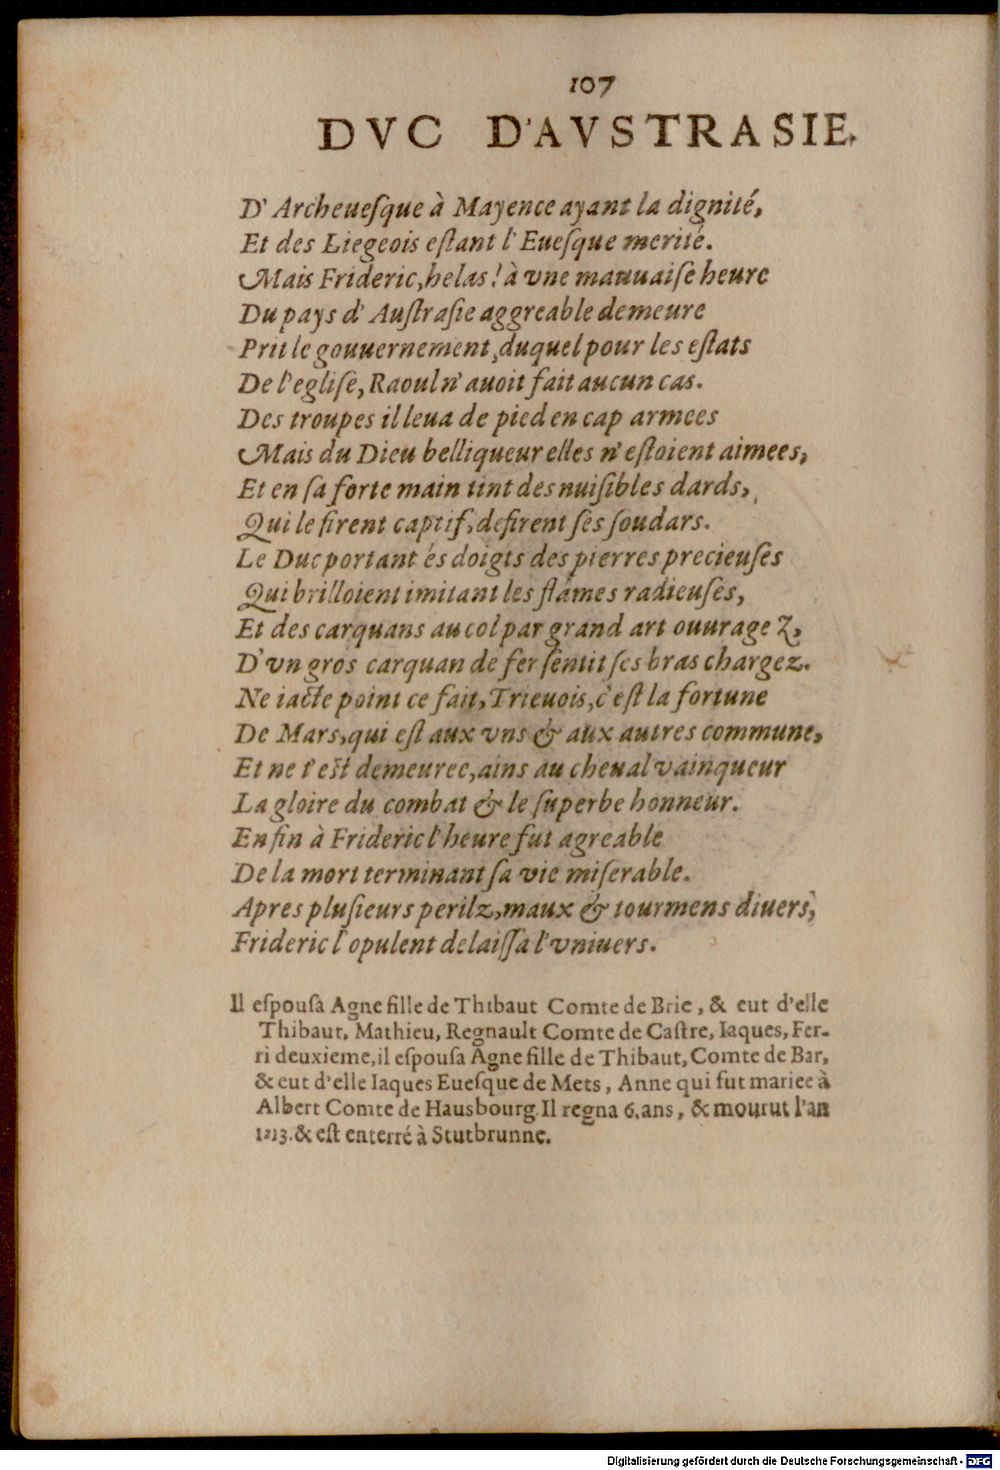 107
DVC D'AVSTRASIE.
D'Archeueſque à Mayence ayant la dignité,
Et des Liegeois eſtant l'Eueſque merité.
Mais Frideric, helas! à vne mauuaiſe heure
Du pays d'Auſtraſie aggreable demeure
Prit le gouuernement, duquel pour les eſtats
De l'egliſe, Raoul n'auoit fait aucun cas.
Des troupes il leua de pied en cap armees
Mais du Dieu belliqueur elles n'eſtoient aimees,
Et en ſa forte main tint des nuiſibles dards,
Qui le firent captif, defirent ſes ſoudars.
Le Duc portant és doigts des pierres precieuſes
Qui brilloient imitant les flâmes radieuſes,
Et des carquans au col par grand art ouuragez,
D'vn gros carquan de fer ſentit ſes bras chargez.
Ne iacte point ce fait, Trieuois, c'eſt la fortune
De Mars, qui eſt aux vns & aux autres commune,
Et ne t'eſt demeuree, ains au cheual vainqueur
La gloire du combat & le ſuperbe honneur.
En fin à Frideric l'heure fut agreable
De la mort terminant ſa vie miſerable.
Apres pluſieurs perilz, maux & tourmens diuers,
Frideric l'opulent delaiſſa l'vniuers.
Il eſpouſa Agne fille de Thibaut Comte de Brie, & eut d'elle
Thibaut, Mathieu, Regnault Comte de Caſtre, Iaques, Fer-
ri deuxieme, il eſpouſa Agne fille de Thibaut, Comte de Bar,
& eut d'elle Iaques Eueſque de Mets, Anne qui fut mariee à
Albert Comte de Hausbourg. Il regna 6. ans, & mourut l'an
1213. & eſt enterré à Stutbrunne.
Digitalisierung gefördert durch die Deutsche Forschungsgemeinschaft - DFG